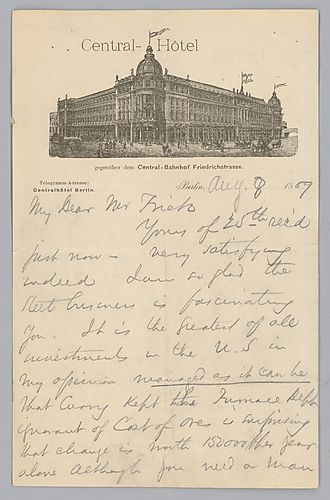 Central-Hôtel
gegenüber dem Central-Bahnhof Friedrichstrasse.
Telegramm-Adresse:
Centralhôtel Berlin.
Berlin, Aug 8 1889
My Dear Mr Frick
Yours of 25th recd
just now — very satisfying
indeed I am so glad the
business is fascinating
you. It is the greatest of all
investments in the U.S in
my opinion managed as it can be
that Curry kept the Furnace Dept
ignorant of Cost of ores is surprising
that change is worth 150000 per year
alone although you need a man